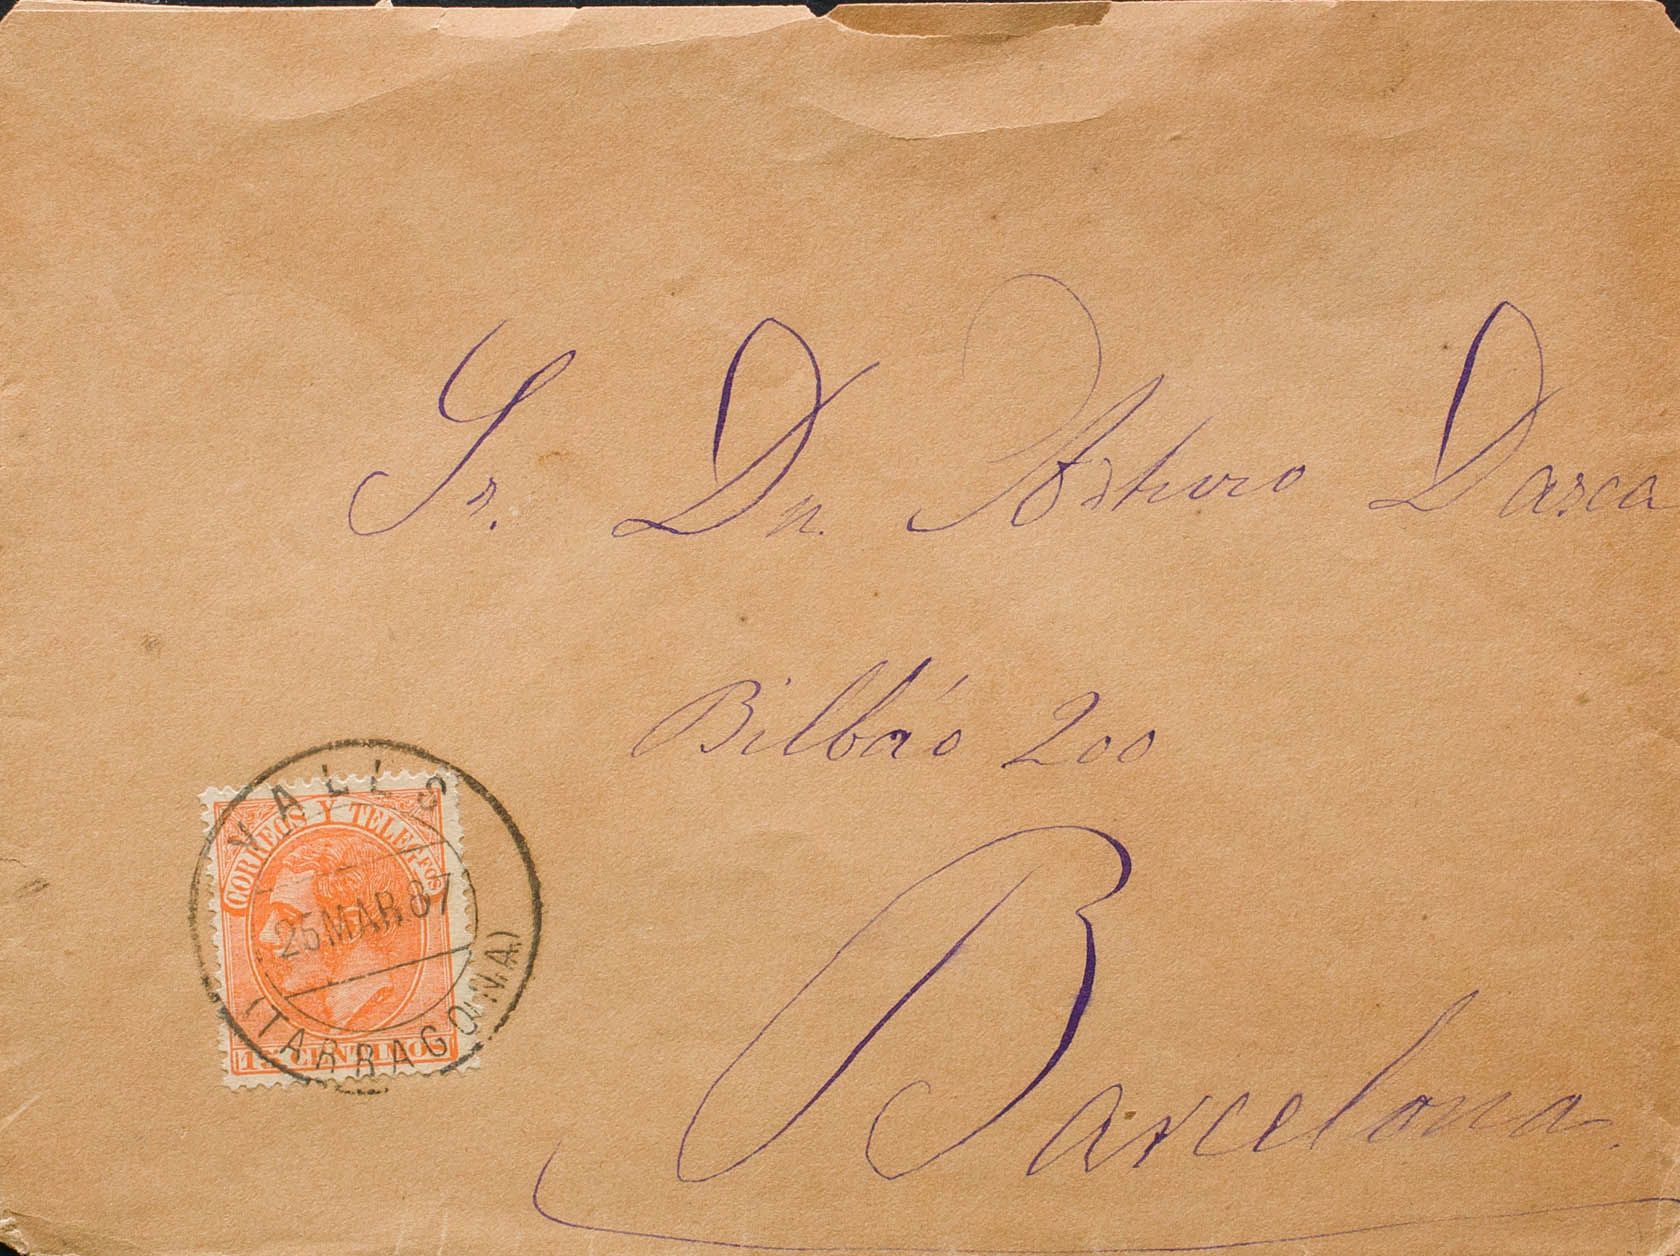 Sr. Dn. Arturo Dasca
Bilbáo 200
Barcelona.
VALLS
25 MAR. 87
(TARRAGONA)
CORREOS Y TELEGFOS
15 CENTIMOS